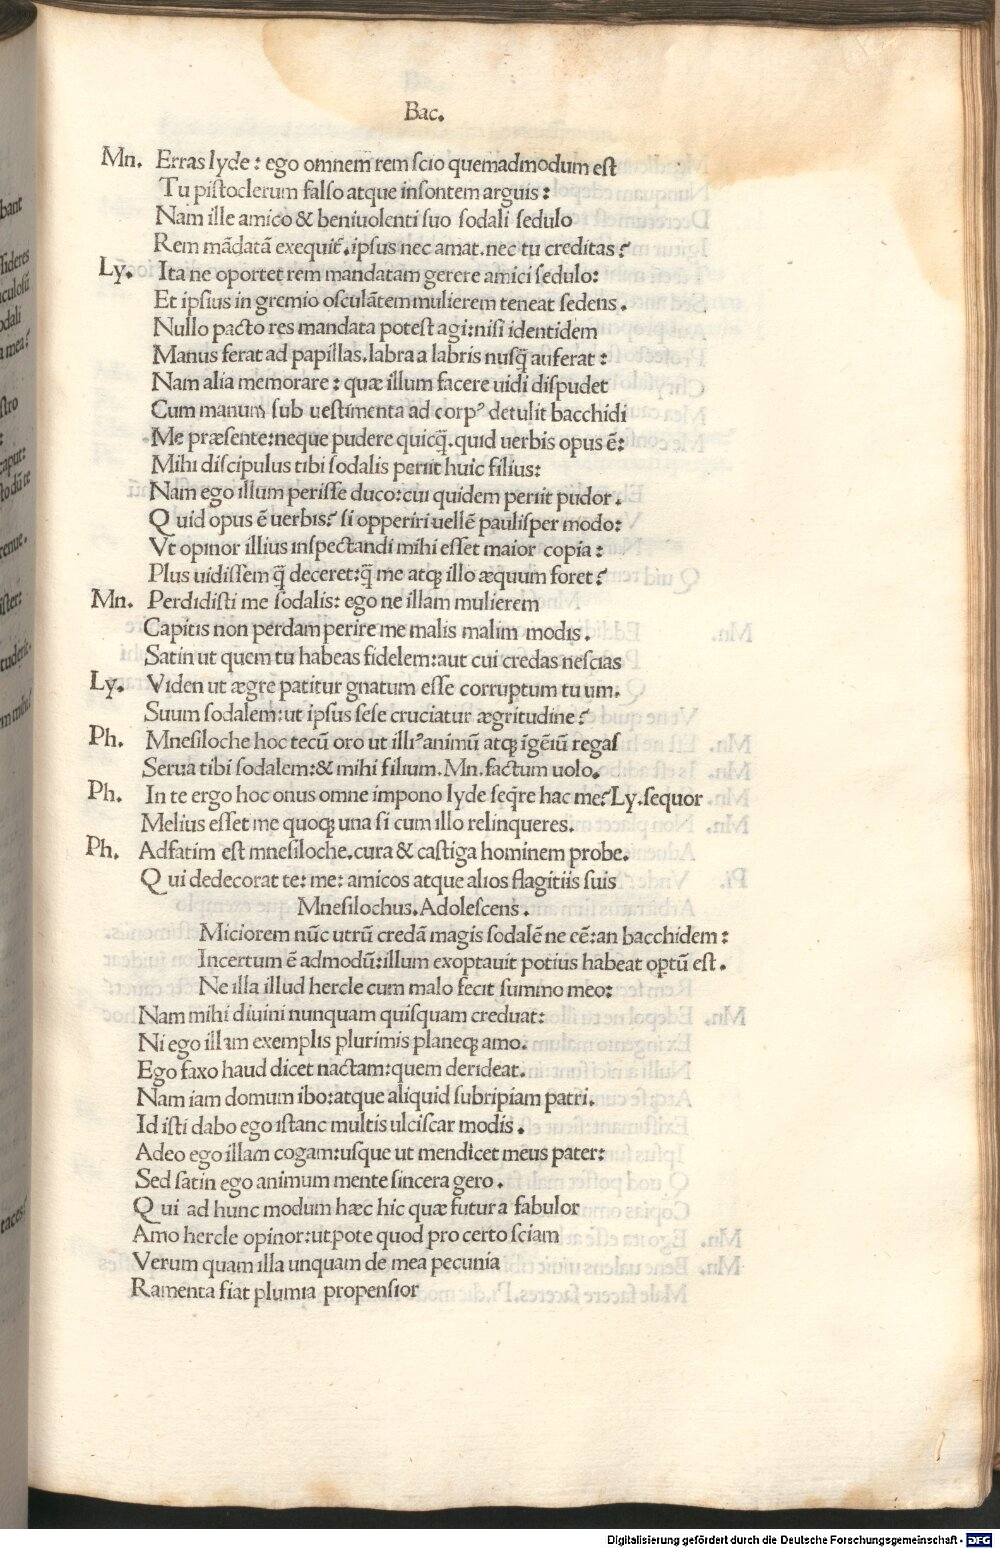 Bac.
Mn. Erras lyde: ego omnem rem scio quemadmodum est
Tu pistoclerum falso atque insontem arguis:
Nam ille amico & beniuolenti suo sodali sedulo
Rem mādatā exequit̄. ipsus nec amat. nec tu creditas?
Ly. Ita ne oportet rem mandatam gerere amici sedulo:
Et ipsius in gremio osculātem mulierem teneat sedens.
Nullo pacto res mandata potest agi: nisi identidem
Manus ferat ad papillas. labra a labris nusq̄ auferat:
Nam alia memorare: quæ illum facere uidi dispudet
Cum manum sub uestimenta ad corpꝰ detulit bacchidi
Me præsente: neque pudere quicq̄. quid uerbis opus ē:
Mihi discipulus tibi sodalis periit huic filius:
Nam ego illum perisse duco: cui quidem periit pudor.
Quid opus ē uerbis? si opperiri uellē paulisper modo:
Vt opinor illius inspectandi mihi esset maior copia:
Plus uidissem q̄ deceret: q̄ me atqꝫ illo æquum foret?
Mn. Perdidisti me sodalis: ego ne illam mulierem
Capitis non perdam perire me malis malim modis.
Satin ut quem tu habeas fidelem: aut cui credas nescias
Ly. Viden ut ægre patitur gnatum esse corruptum tuum.
Suum sodalem: ut ipsus sese cruciatur ægritudine?
Ph. Mnesiloche hoc tecū oro ut illiꝰ animū atqꝫ īgēiū regas
Serua tibi sodalem: & mihi filium. Mn. factum uolo.
Ph. In te ergo hoc onus omne impono lyde seq̄re hac me? Ly. sequor
Melius esset me quoqꝫ una si cum illo relinqueres.
Ph. Adfatim est mnesiloche. cura & castiga hominem probe.
Qui dedecorat te: me: amicos atque alios flagitiis suis
Mnesilochus. Adolescens.
Miciorem nūc utrū credā magis sodalē ne cē: an bacchidem:
Incertum ē admodū: illum exoptauit potius habeat optū est.
Ne illa illud hercle cum malo fecit summo meo:
Nam mihi diuini nunquam quisquam creduat:
Ni ego illam exemplis plurimis planeqꝫ amo.
Ego faxo haud dicet nactam: quem derideat.
Nam iam domum ibo: atque aliquid subripiam patri.
Id isti dabo ego istanc multis ulciscar modis.
Adeo ego illam cogam: usque ut mendicet meus pater:
Sed satin ego animum mente sincera gero.
Qui ad hunc modum hæc hic quæ futura fabulor
Amo hercle opinor: utpote quod pro certo sciam
Verum quam illa unquam de mea pecunia
Ramenta fiat plumia propensior
bant
sideres
culosū
odali
a mea?
stro
caput:
to dū te
renue.
ister:
tuderit.
em mihi?
taces?
Digitalisierung gefördert durch die Deutsche Forschungsgemeinschaft - DFG